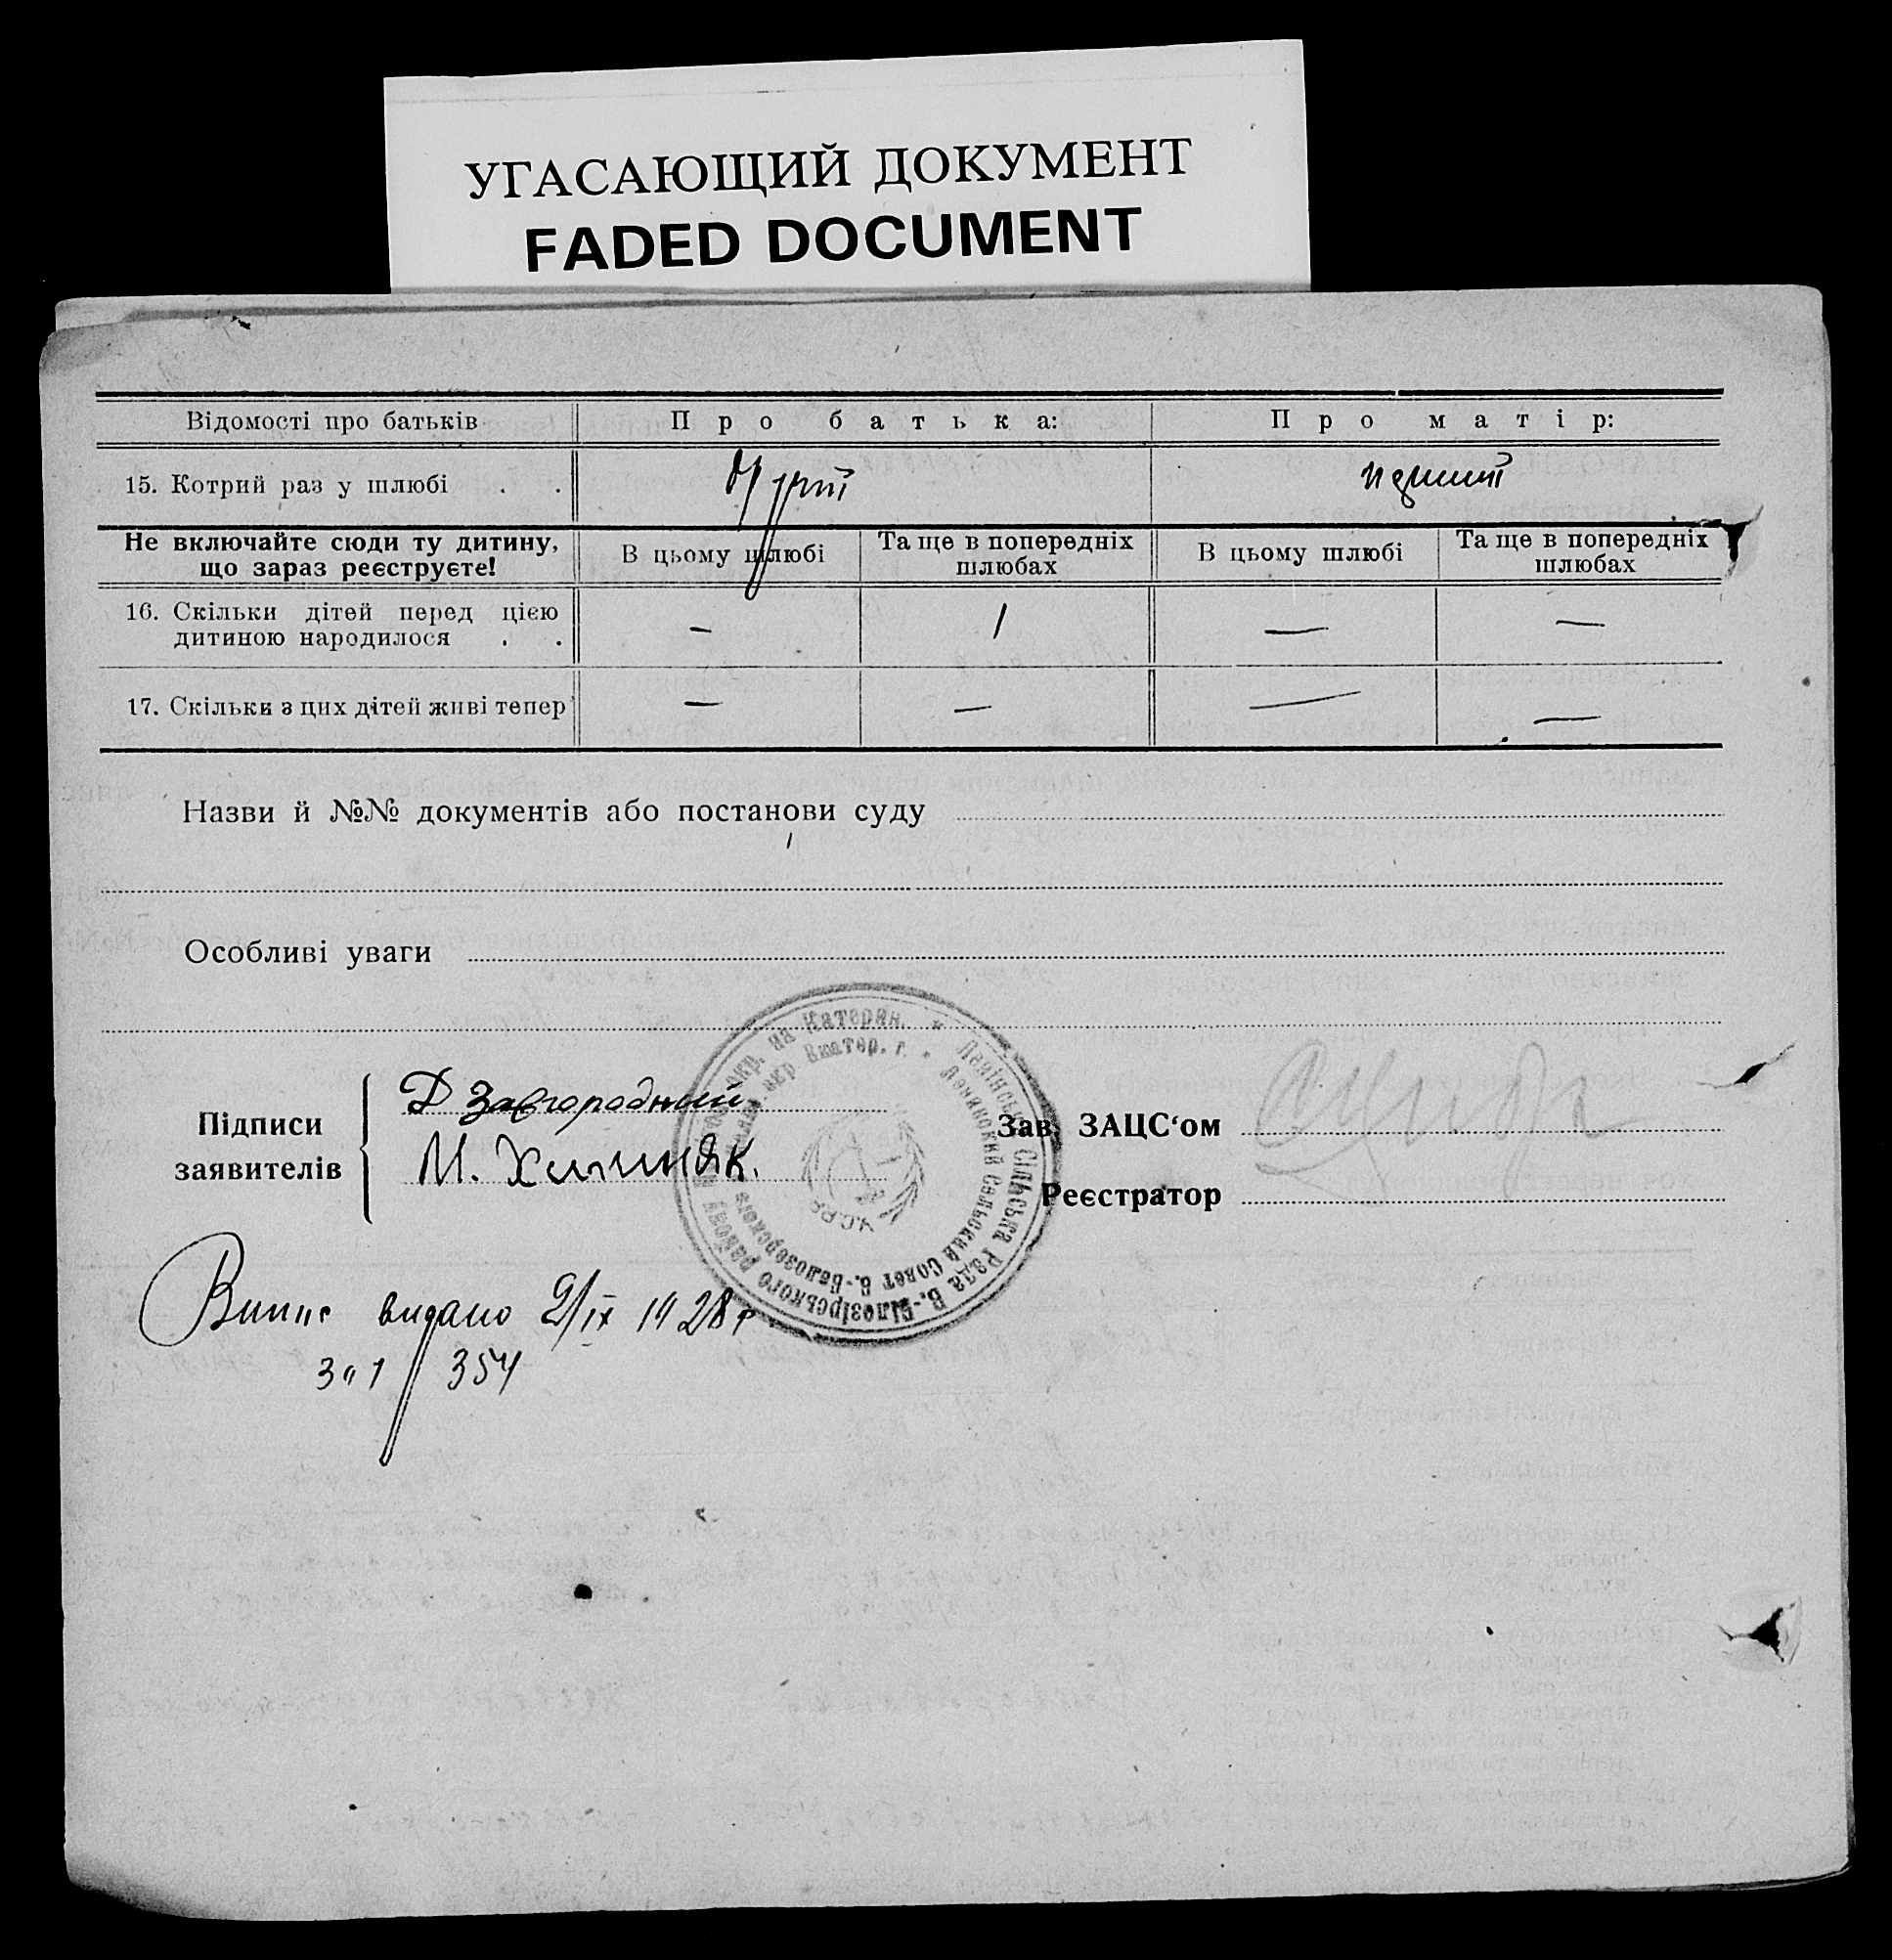 УГАСАЮЩИЙ ДОКУМЕНТ
FADED DOCUMENT
Відомості про батьків
Про батька:
Про матір:
15. Котрий раз у шлюбі . .
другий
перший
Не включайте сюди ту дитину,
що зараз реєструєте!
В цьому шлюбі
Та ще в попередніх
шлюбах
В цьому шлюбі
Та ще в попередніх
шлюбах
16. Скільки дітей перед цією
дитиною народилося . .
—
1
—
—
17. Скільки з цих дітей живі тепер
—
—
—
—
Назви й №№ документів або постанови суду
Особливі уваги
Підписи
заявителів
Д Завгородний
М. Хижняк.
Зав. ЗАЦС‘ом
Реєстратор
Ленінська Сільська Рада В.-Білозірського району окр. на Катерин.
Ленинский Сельский Совет В.-Белозерского окр. Екатер. г.
У.С.Р.Р.
Випис видано 2/ІХ 1928 р
за 354